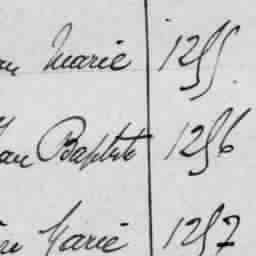 Marie 1255
Jean Baptiste 1256
Marie 1257